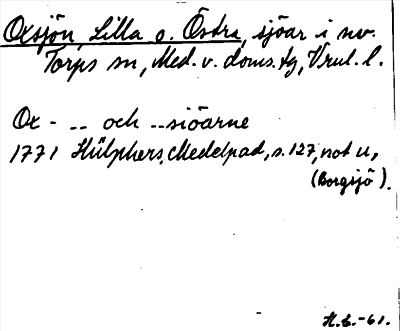 Oxsjön, Lilla o. Östra, sjöar i nv.
Torps sn, Med. v. doms. tg, Vrul. l.
Ox - -- och --siöarne
1771 Hülphers, Medelpad, s. 127, not u,
(Borgsjö).
H.S.-61.